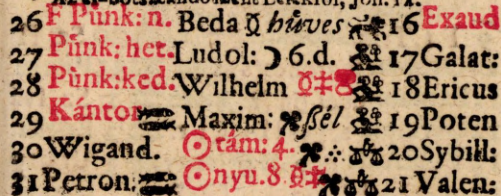 26 F Pünk: n. Beda ☿ hűves 16 Exaud
27 Pünk: het. Ludol: ☽ 6. d. 17 Galat:
28 Pünk: ked. Wilhelm 18 Ericus
29 Kántor Maxim: ßél 19 Poten
30 Wigand. ☉ tám: 4. 20 Sybill:
31 Petron: ☉ nyu. 8. 21 Valen.